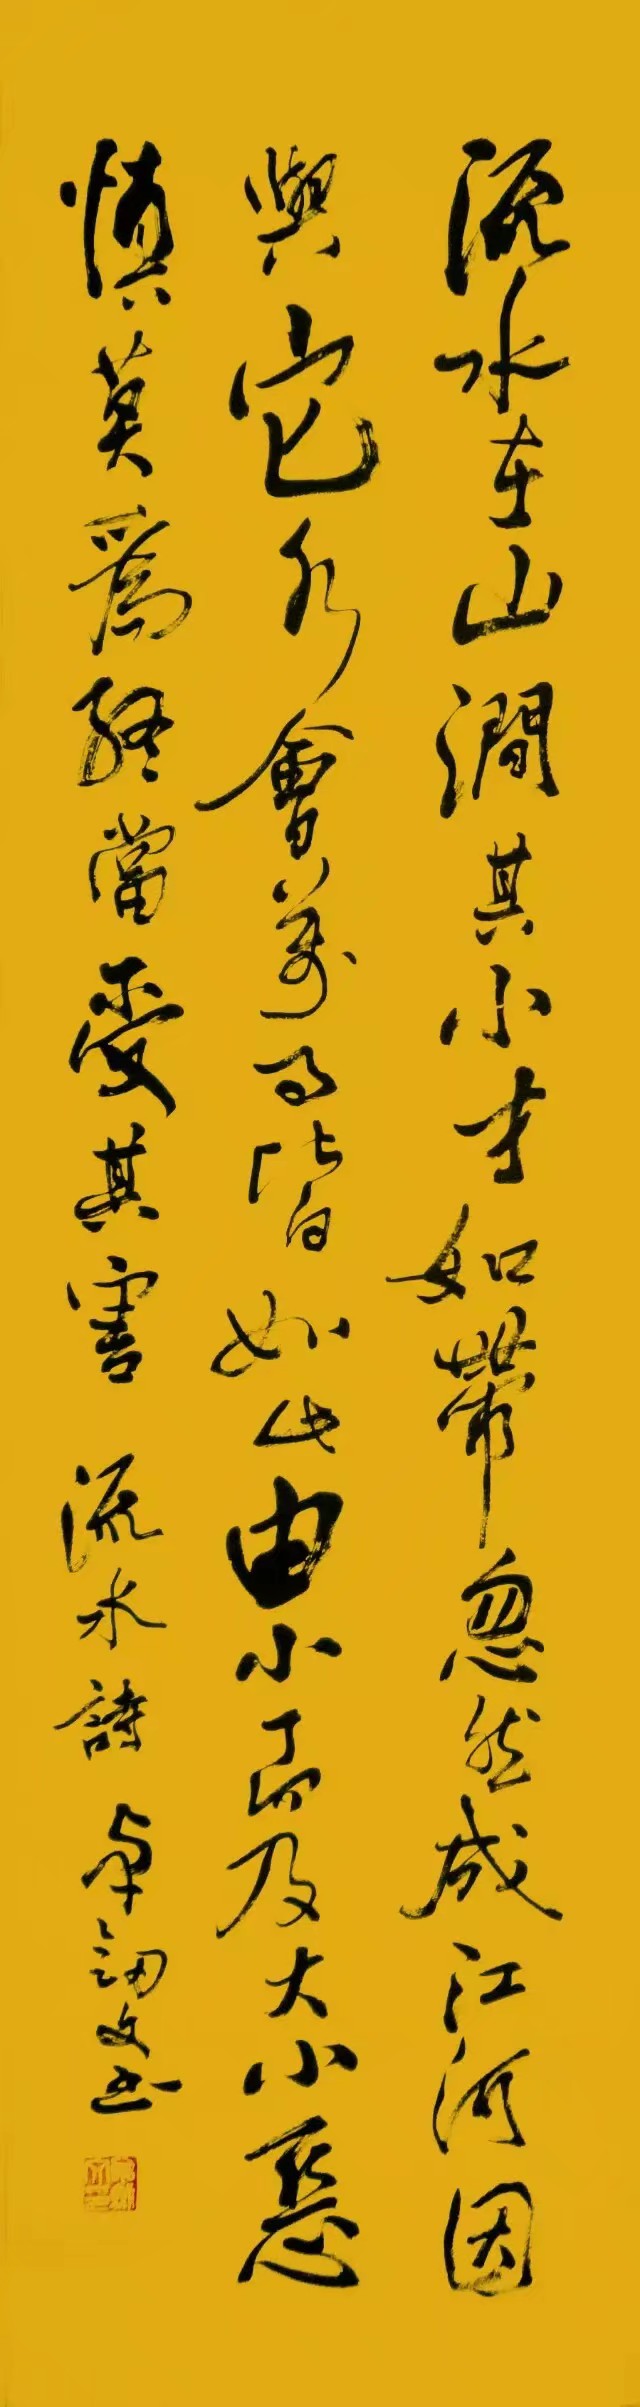 流水在山澗其小才如帶忽然成江河因
與它水會萬事皆如此由小而及大小惡
慎莫為終當受其害 流水詩 卓劍文書